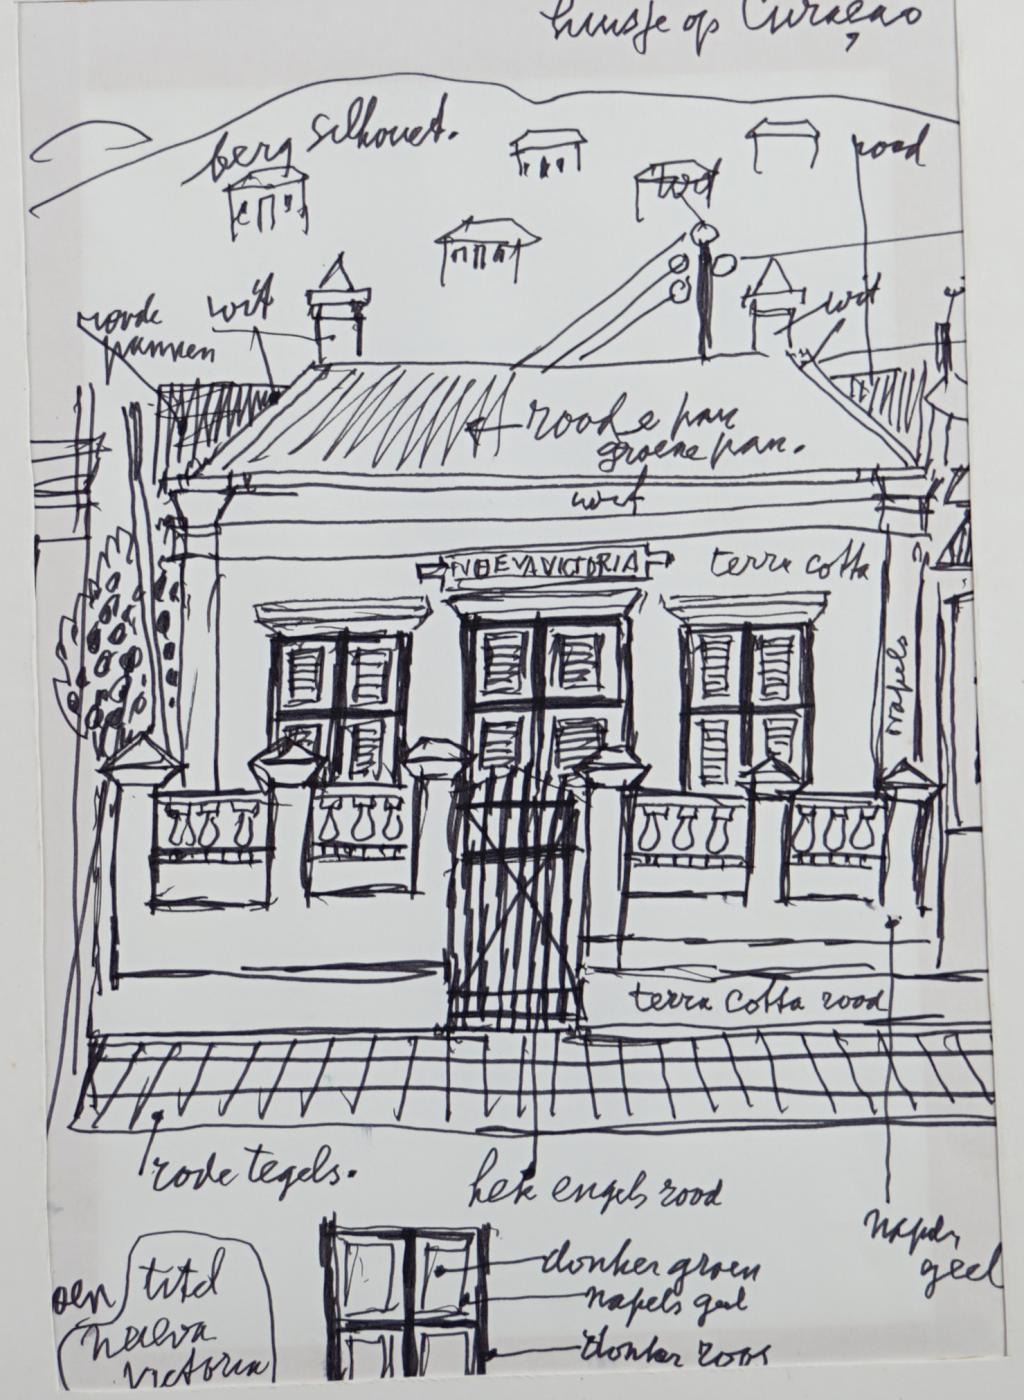 huisje op Curaçao
berg silhouet.
rood
wit
rode
pannen
wit
wit
roode pan
groene pan.
wit
NUEVA VICTORIA
terra cotta
napels
terra cotta rood
rode tegels.
hek engels rood
napels
geel
donker groen
napels geel
donker rood
titel
nueva
victoria